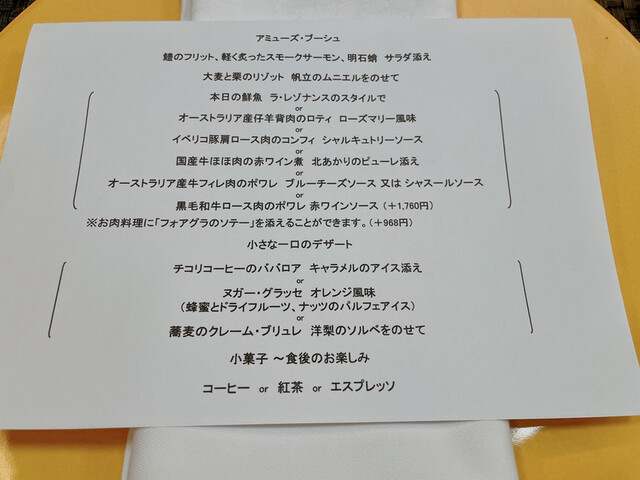 アミューズ・ブーシュ
鱧のフリット、軽く炙ったスモークサーモン、明石蛸 サラダ添え
大麦と栗のリゾット 帆立のムニエルをのせて
本日の鮮魚 ラ・レゾナンスのスタイルで
or
オーストラリア産仔羊背肉のロティ ローズマリー風味
or
イベリコ豚肩ロース肉のコンフィ シャルキュトリーソース
or
国産牛ほほ肉の赤ワイン煮 北あかりのピューレ添え
or
オーストラリア産牛フィレ肉のポワレ ブルーチーズソース 又は シャスールソース
or
黒毛和牛ロース肉のポワレ 赤ワインソース (+1,760円)
※お肉料理に「フォアグラのソテー」を添えることができます。(+968円)
小さな一口のデザート
チコリコーヒーのババロア キャラメルのアイス添え
or
ヌガー・グラッセ オレンジ風味
(蜂蜜とドライフルーツ、ナッツのパルフェアイス)
or
蕎麦のクレーム・ブリュレ 洋梨のソルベをのせて
小菓子 ～食後のお楽しみ
コーヒー or 紅茶 or エスプレッソ